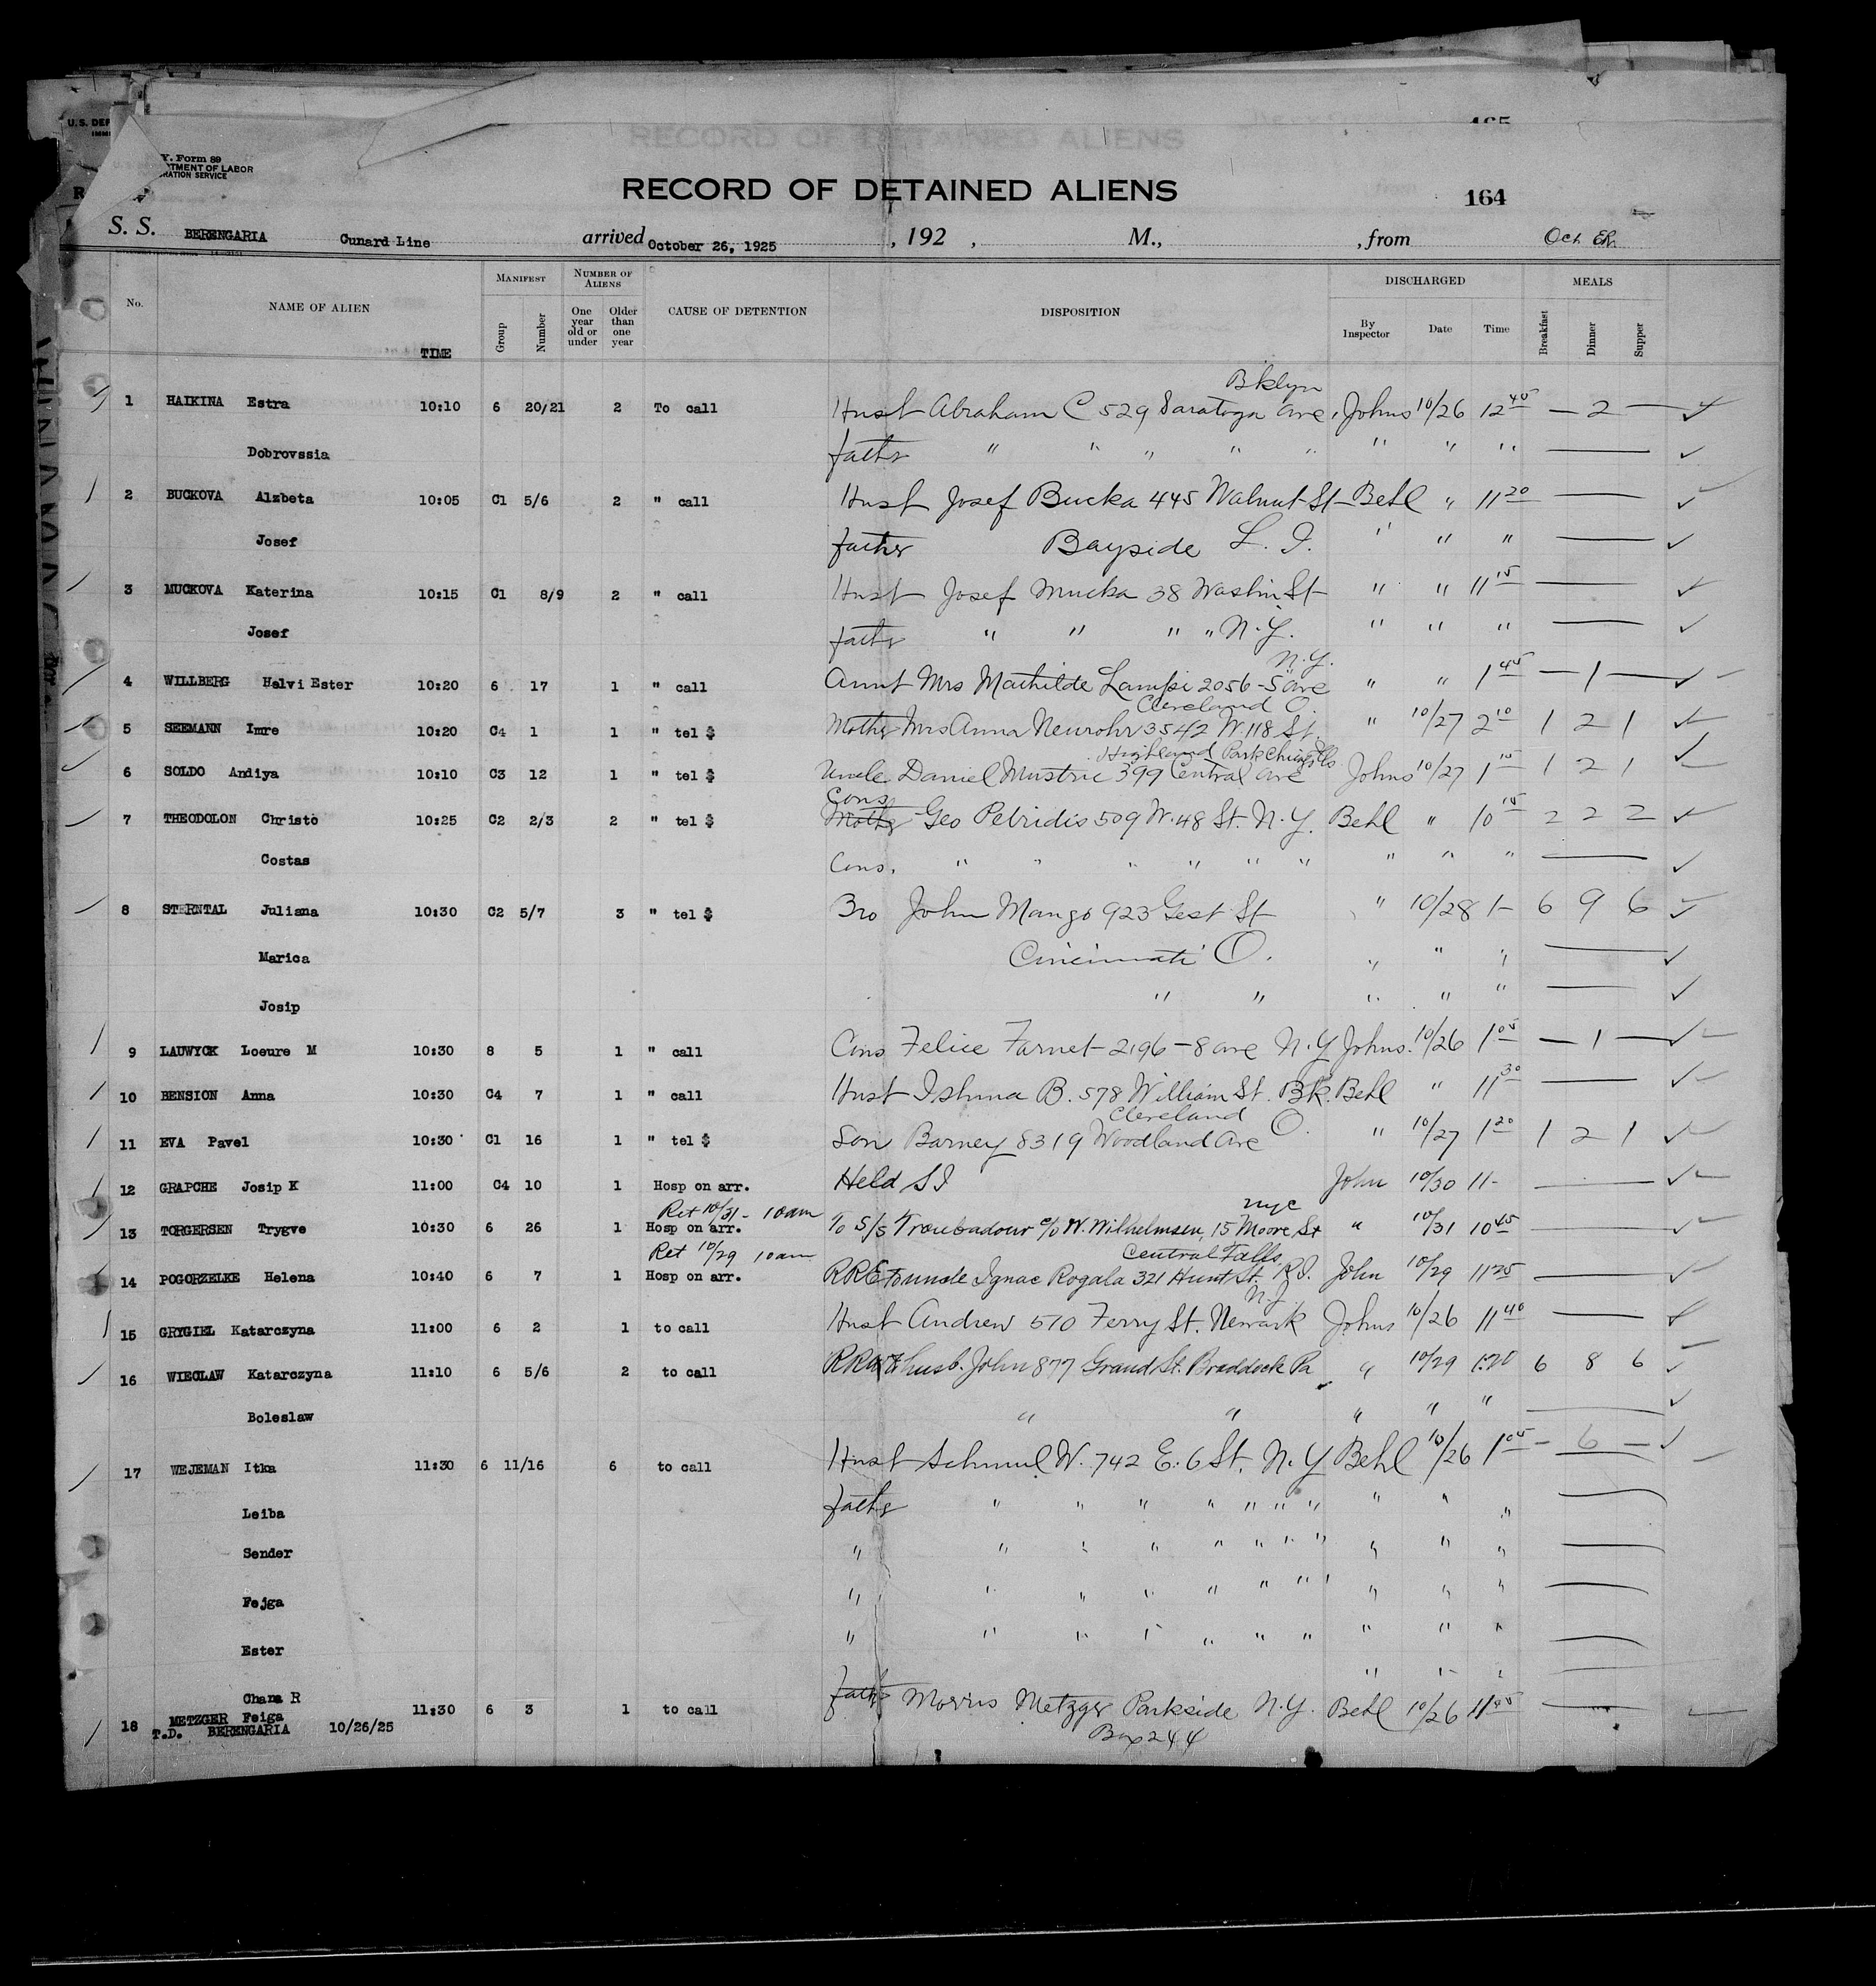 165
U.S. DEP
Y. Form 89
TMENT OF LABOR
RATION SERVICE
RECORD OF DETAINED ALIENS
164
S. S. BERENGARIA Cunard Line arrived October 26, 1925 , 192 , M., , from Oct
No. NAME OF ALIEN TIME MANIFEST Group Number NUMBER OF ALIENS One year old or under Older than one year CAUSE OF DETENTION DISPOSITION DISCHARGED By Inspector Date Time MEALS Breakfast Dinner Supper
Bklyn
1 HAIKINA Estra 10:10 6 20/21 2 To call Husb Abraham C 529 Saratoga ave, Johns 10/26 12 40 — 2 — ✓
Dobrovssia father " " " " " " " " — ✓
2 BUCKOVA Alzbeta 10:05 C1 5/6 2 " call Husb Josef Bucka 445 Walnut St Behl " 11 20 — ✓
Josef father Bayside L. I. " " " — ✓
3 MUCKOVA Katerina 10:15 C1 8/9 2 " call Husb Josef Mucka 38 Washin St " " 11 15 — ✓
Josef father " " " " N.Y. " " " — ✓
N.Y.
4 WILLBERG Helvi Ester 10:20 6 17 1 " call Aunt Mrs Mathilde Lampi 2056-5 ave " " 1 45 — 1 — ✓
Cleveland O.
5 SEEMANN Imre 10:20 C4 1 1 " tel $ Mother Mrs Anna Neurohr 3542 W. 118 St. " 10/27 2 10 1 2 1 ✓
Highland Park Ills
6 SOLDO Andiya 10:10 C3 12 1 " tel $ Uncle Daniel Mustric 399 Central ave Johns 10/27 1 15 1 2 1 ✓
Cons
7 THEODOLON Christo 10:25 C2 2/3 2 " tel $ Mother Geo Petridis 509 W. 48 St. N.Y. Behl " 10 15 2 2 2 ✓
Costas Cons. " " " " " " " " " — ✓
8 STERNTAL Juliana 10:30 C2 5/7 3 " tel $ Bro John Mango 923 Gest St " 10/28 1- 6 9 6 ✓
Marica Cincinnati O. " " " — ✓
Josip " " " " " — ✓
9 LAUWYCK Loeure M 10:30 8 5 1 " call Cons Felice Farnet 2196-8 ave N.Y Johns. 10/26 1 05 — 1 — ✓
10 BENSION Anna 10:30 C4 7 1 " call Husb Ishma B. 578 William St. Bk. Behl " 11 30 — ✓
Cleveland
11 EVA Pavel 10:30 C1 16 1 " tel $ Son Barney 8319 Woodland Ave O. " 10/27 1 20 1 2 1 ✓
12 GRAPCHE Josip K 11:00 C4 10 1 Hosp on arr. Held S I John 10/30 11- — ✓
Ret 10/31 - 10 am nyc
13 TORGERSEN Trygve 10:30 6 26 1 Hosp on arr. To S/S Troubadour c/o W. Wilhelmsen, 15 Moore St " 10/31 10 45 — ✓
Ret 10/29 10 am Central Falls,
14 POGORZELKE Helena 10:40 6 7 1 Hosp on arr. RRE to uncle Ignac Rogala 321 Hunt St. R.I. John 10/29 11 25 — ✓
N.J.
15 GRYGIEL Katarczyna 11:00 6 2 1 to call Husb Andrew 510 Ferry St. Newark Johns 10/26 11 40 — ✓
16 WIECLAW Katarczyna 11:10 6 5/6 2 to call husb. John 877 Grand St. Braddock Pa " 10/29 1:20 6 8 6 ✓
Boleslaw " " " " " — ✓
17 WEJEMAN Itka 11:30 6 11/16 6 to call Husb Schmul W. 742 E. 6 St. N.Y Behl 10/26 1 05 — 6 — ✓
Leiba father " " " " " " " " " " —
Sender " " " " " " " " " " " —
Fejga " " " " " " " " " " —
Ester " " " " " " " " " " —
Chana R " " " —
18 METZGER Feiga 11:30 6 3 1 to call father Morris Metzger Parkside N.Y. Behl 10/26 11 45 —
T.D. BERENGARIA 10/26/25 Box 244